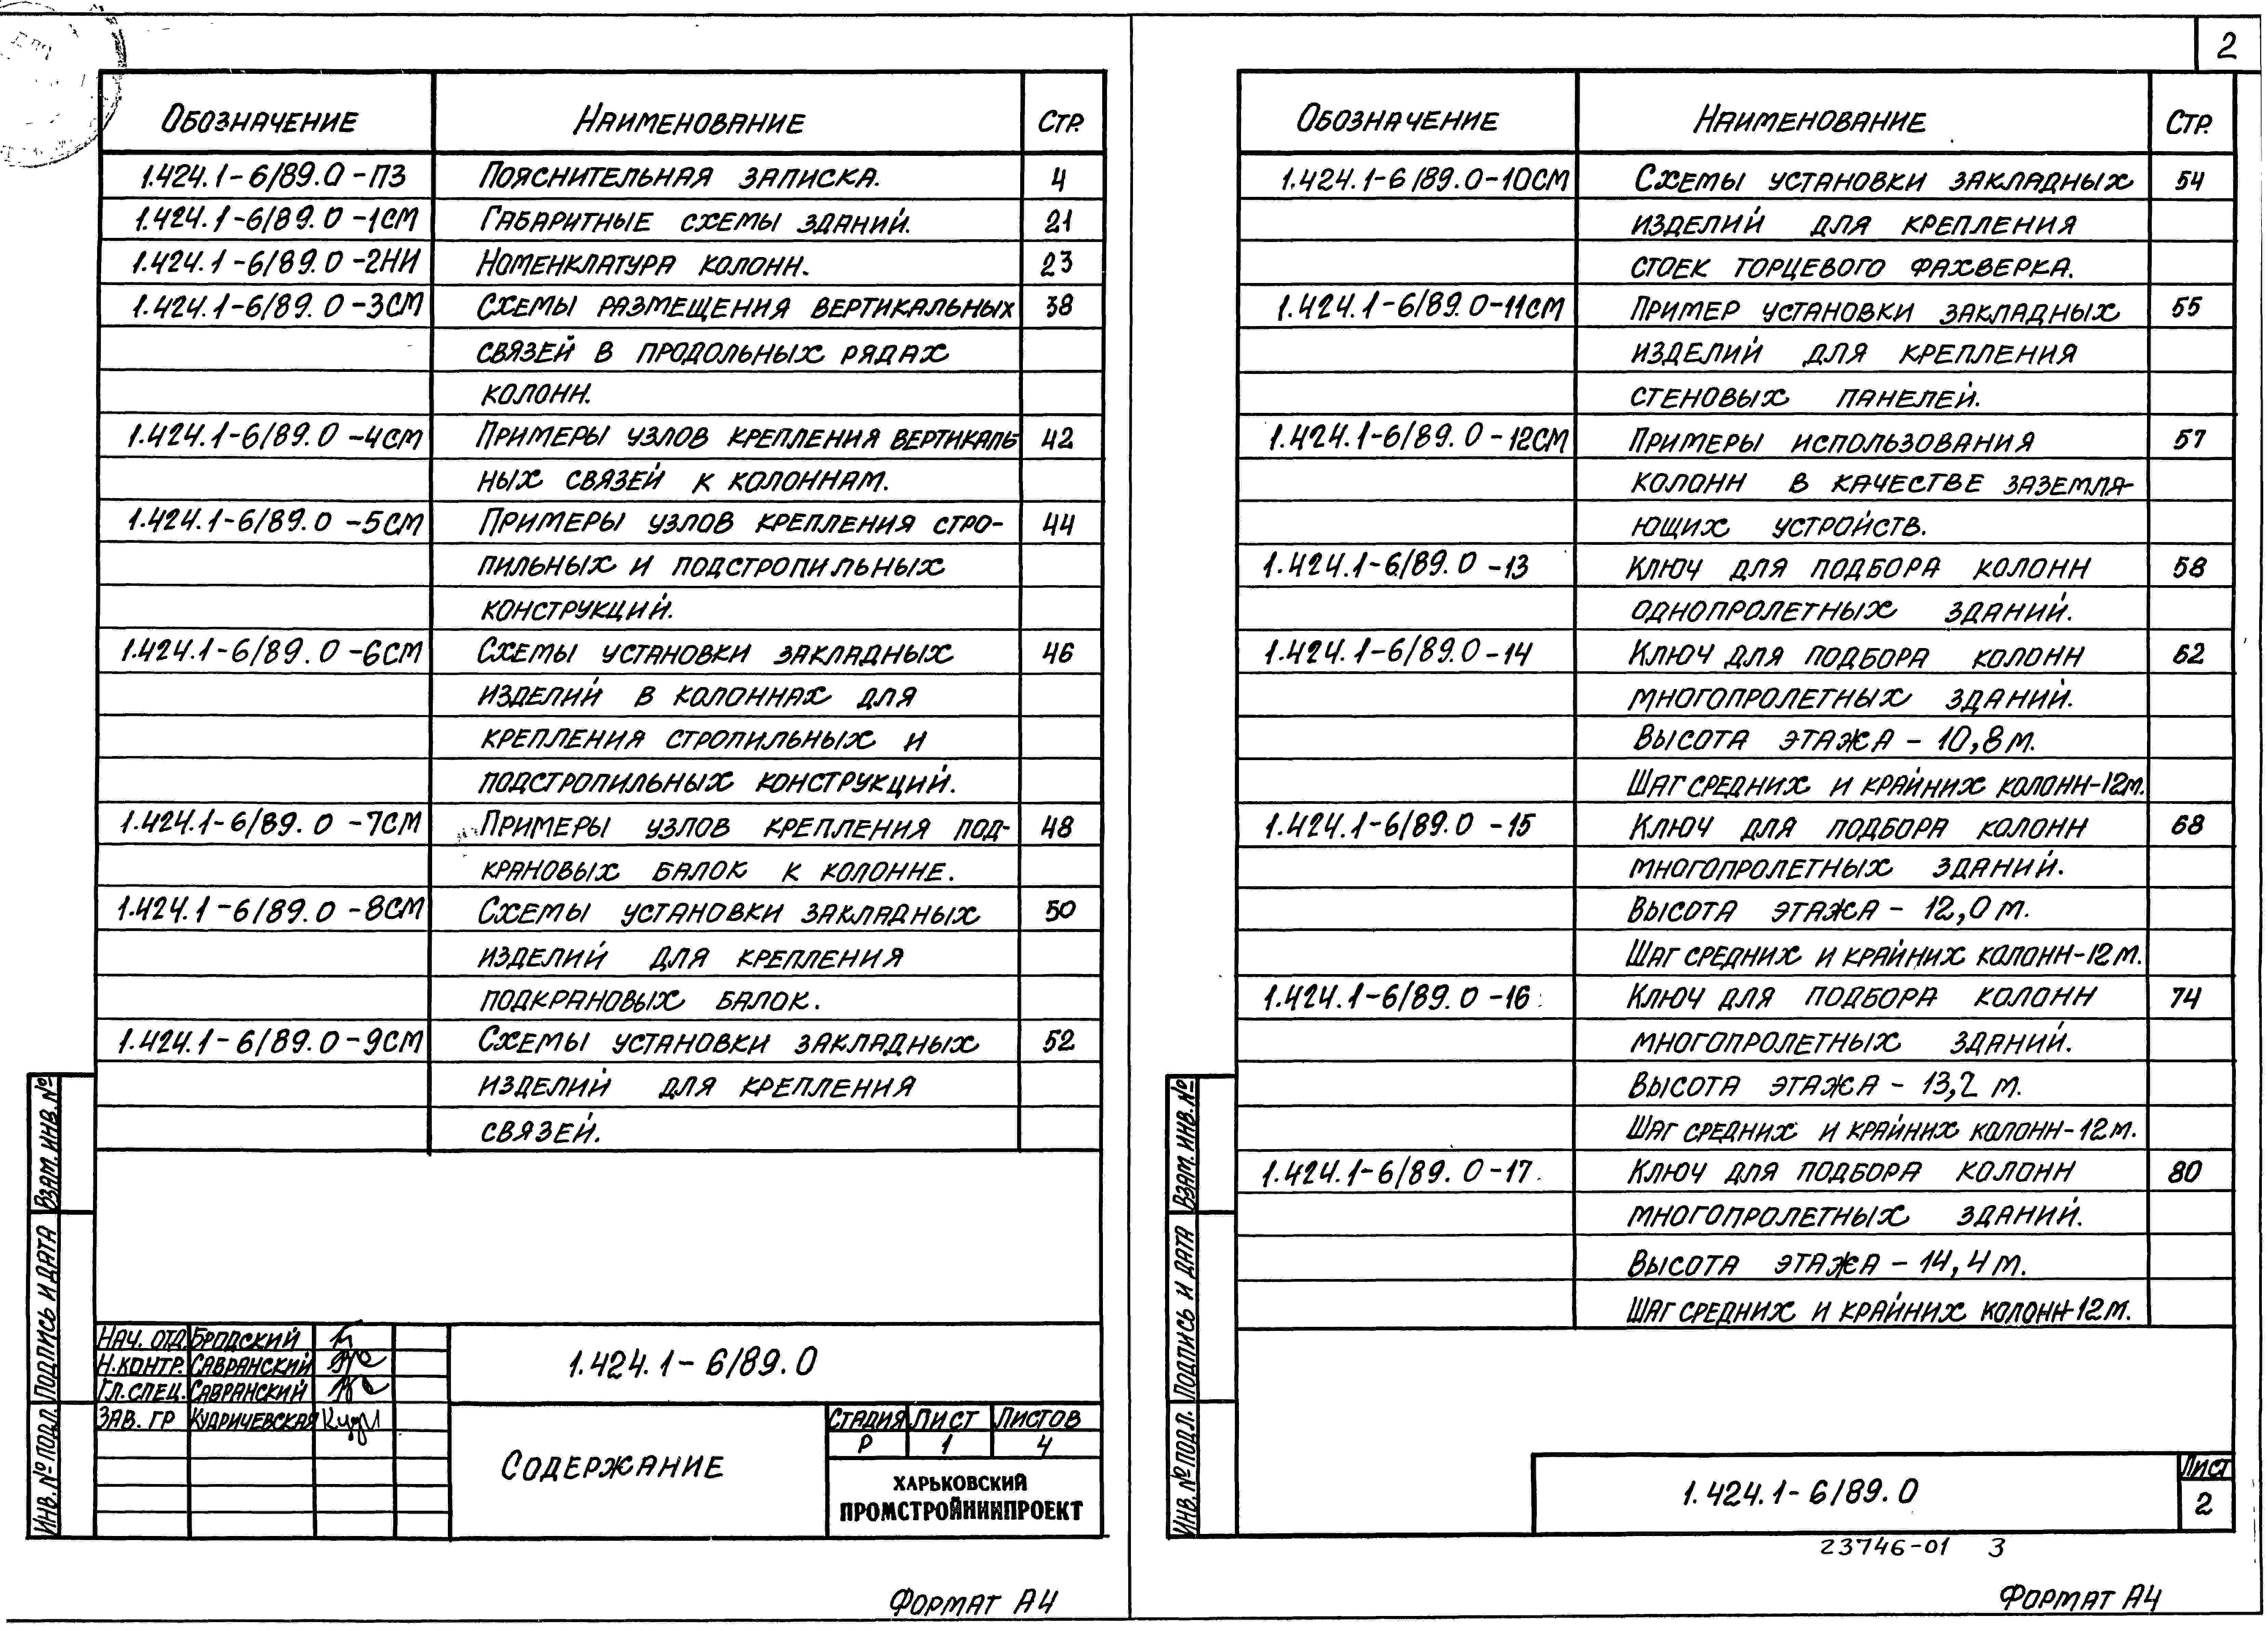 2
ОБОЗНАЧЕНИЕ НАИМЕНОВАНИЕ СТР.
1.424.1-6/89.0-ПЗ ПОЯСНИТЕЛЬНАЯ ЗАПИСКА. 4
1.424.1-6/89.0-1СМ ГАБАРИТНЫЕ СХЕМЫ ЗДАНИЙ. 21
1.424.1-6/89.0-2НИ НОМЕНКЛАТУРА КОЛОНН. 23
1.424.1-6/89.0-3СМ СХЕМЫ РАЗМЕЩЕНИЯ ВЕРТИКАЛЬНЫХ 38
СВЯЗЕЙ В ПРОДОЛЬНЫХ РЯДАХ
КОЛОНН.
1.424.1-6/89.0-4СМ ПРИМЕРЫ УЗЛОВ КРЕПЛЕНИЯ ВЕРТИКАЛЬ 42
НЫХ СВЯЗЕЙ К КОЛОННАМ.
1.424.1-6/89.0-5СМ ПРИМЕРЫ УЗЛОВ КРЕПЛЕНИЯ СТРО- 44
ПИЛЬНЫХ И ПОДСТРОПИЛЬНЫХ
КОНСТРУКЦИЙ.
1.424.1-6/89.0-6СМ СХЕМЫ УСТАНОВКИ ЗАКЛАДНЫХ 46
ИЗДЕЛИЙ В КОЛОННАХ ДЛЯ
КРЕПЛЕНИЯ СТРОПИЛЬНЫХ И
ПОДСТРОПИЛЬНЫХ КОНСТРУКЦИЙ.
1.424.1-6/89.0-7СМ ПРИМЕРЫ УЗЛОВ КРЕПЛЕНИЯ ПОД- 48
КРАНОВЫХ БАЛОК К КОЛОННЕ.
1.424.1-6/89.0-8СМ СХЕМЫ УСТАНОВКИ ЗАКЛАДНЫХ 50
ИЗДЕЛИЙ ДЛЯ КРЕПЛЕНИЯ
ПОДКРАНОВЫХ БАЛОК.
1.424.1-6/89.0-9СМ СХЕМЫ УСТАНОВКИ ЗАКЛАДНЫХ 52
ИЗДЕЛИЙ ДЛЯ КРЕПЛЕНИЯ
СВЯЗЕЙ.
ВЗАМ. ИНВ. №
ПОДПИСЬ И ДАТА
ИНВ. № ПОДЛ.
НАЧ. ОТД. БРОДСКИЙ
Н.КОНТР. САВРАНСКИЙ
ГЛ.СПЕЦ. САВРАНСКИЙ
ЗАВ. ГР КУДРИЧЕВСКАЯ
1.424.1-6/89.0
СОДЕРЖАНИЕ
СТАДИЯ ЛИСТ ЛИСТОВ
Р 1 4
ХАРЬКОВСКИЙ
ПРОМСТРОЙНИИПРОЕКТ
ФОРМАТ А4
ОБОЗНАЧЕНИЕ НАИМЕНОВАНИЕ СТР.
1.424.1-6/89.0-10СМ СХЕМЫ УСТАНОВКИ ЗАКЛАДНЫХ 54
ИЗДЕЛИЙ ДЛЯ КРЕПЛЕНИЯ
СТОЕК ТОРЦЕВОГО ФАХВЕРКА.
1.424.1-6/89.0-11СМ ПРИМЕР УСТАНОВКИ ЗАКЛАДНЫХ 55
ИЗДЕЛИЙ ДЛЯ КРЕПЛЕНИЯ
СТЕНОВЫХ ПАНЕЛЕЙ.
1.424.1-6/89.0-12СМ ПРИМЕРЫ ИСПОЛЬЗОВАНИЯ 57
КОЛОНН В КАЧЕСТВЕ ЗАЗЕМЛЯ-
ЮЩИХ УСТРОЙСТВ.
1.424.1-6/89.0-13 КЛЮЧ ДЛЯ ПОДБОРА КОЛОНН 58
ОДНОПРОЛЕТНЫХ ЗДАНИЙ.
1.424.1-6/89.0-14 КЛЮЧ ДЛЯ ПОДБОРА КОЛОНН 62
МНОГОПРОЛЕТНЫХ ЗДАНИЙ.
ВЫСОТА ЭТАЖА - 10,8 М.
ШАГ СРЕДНИХ И КРАЙНИХ КОЛОНН-12М.
1.424.1-6/89.0-15 КЛЮЧ ДЛЯ ПОДБОРА КОЛОНН 68
МНОГОПРОЛЕТНЫХ ЗДАНИЙ.
ВЫСОТА ЭТАЖА - 12,0 М.
ШАГ СРЕДНИХ И КРАЙНИХ КОЛОНН-12М.
1.424.1-6/89.0-16 КЛЮЧ ДЛЯ ПОДБОРА КОЛОНН 74
МНОГОПРОЛЕТНЫХ ЗДАНИЙ.
ВЫСОТА ЭТАЖА - 13,2 М.
ШАГ СРЕДНИХ И КРАЙНИХ КОЛОНН-12М.
1.424.1-6/89.0-17 КЛЮЧ ДЛЯ ПОДБОРА КОЛОНН 80
МНОГОПРОЛЕТНЫХ ЗДАНИЙ.
ВЫСОТА ЭТАЖА - 14,4М.
ШАГ СРЕДНИХ И КРАЙНИХ КОЛОНН-12М.
ВЗАМ. ИНВ. №
ПОДПИСЬ И ДАТА
ИНВ. № ПОДЛ.
1.424.1-6/89.0
ЛИСТ
2
23746-01 3
ФОРМАТ А4